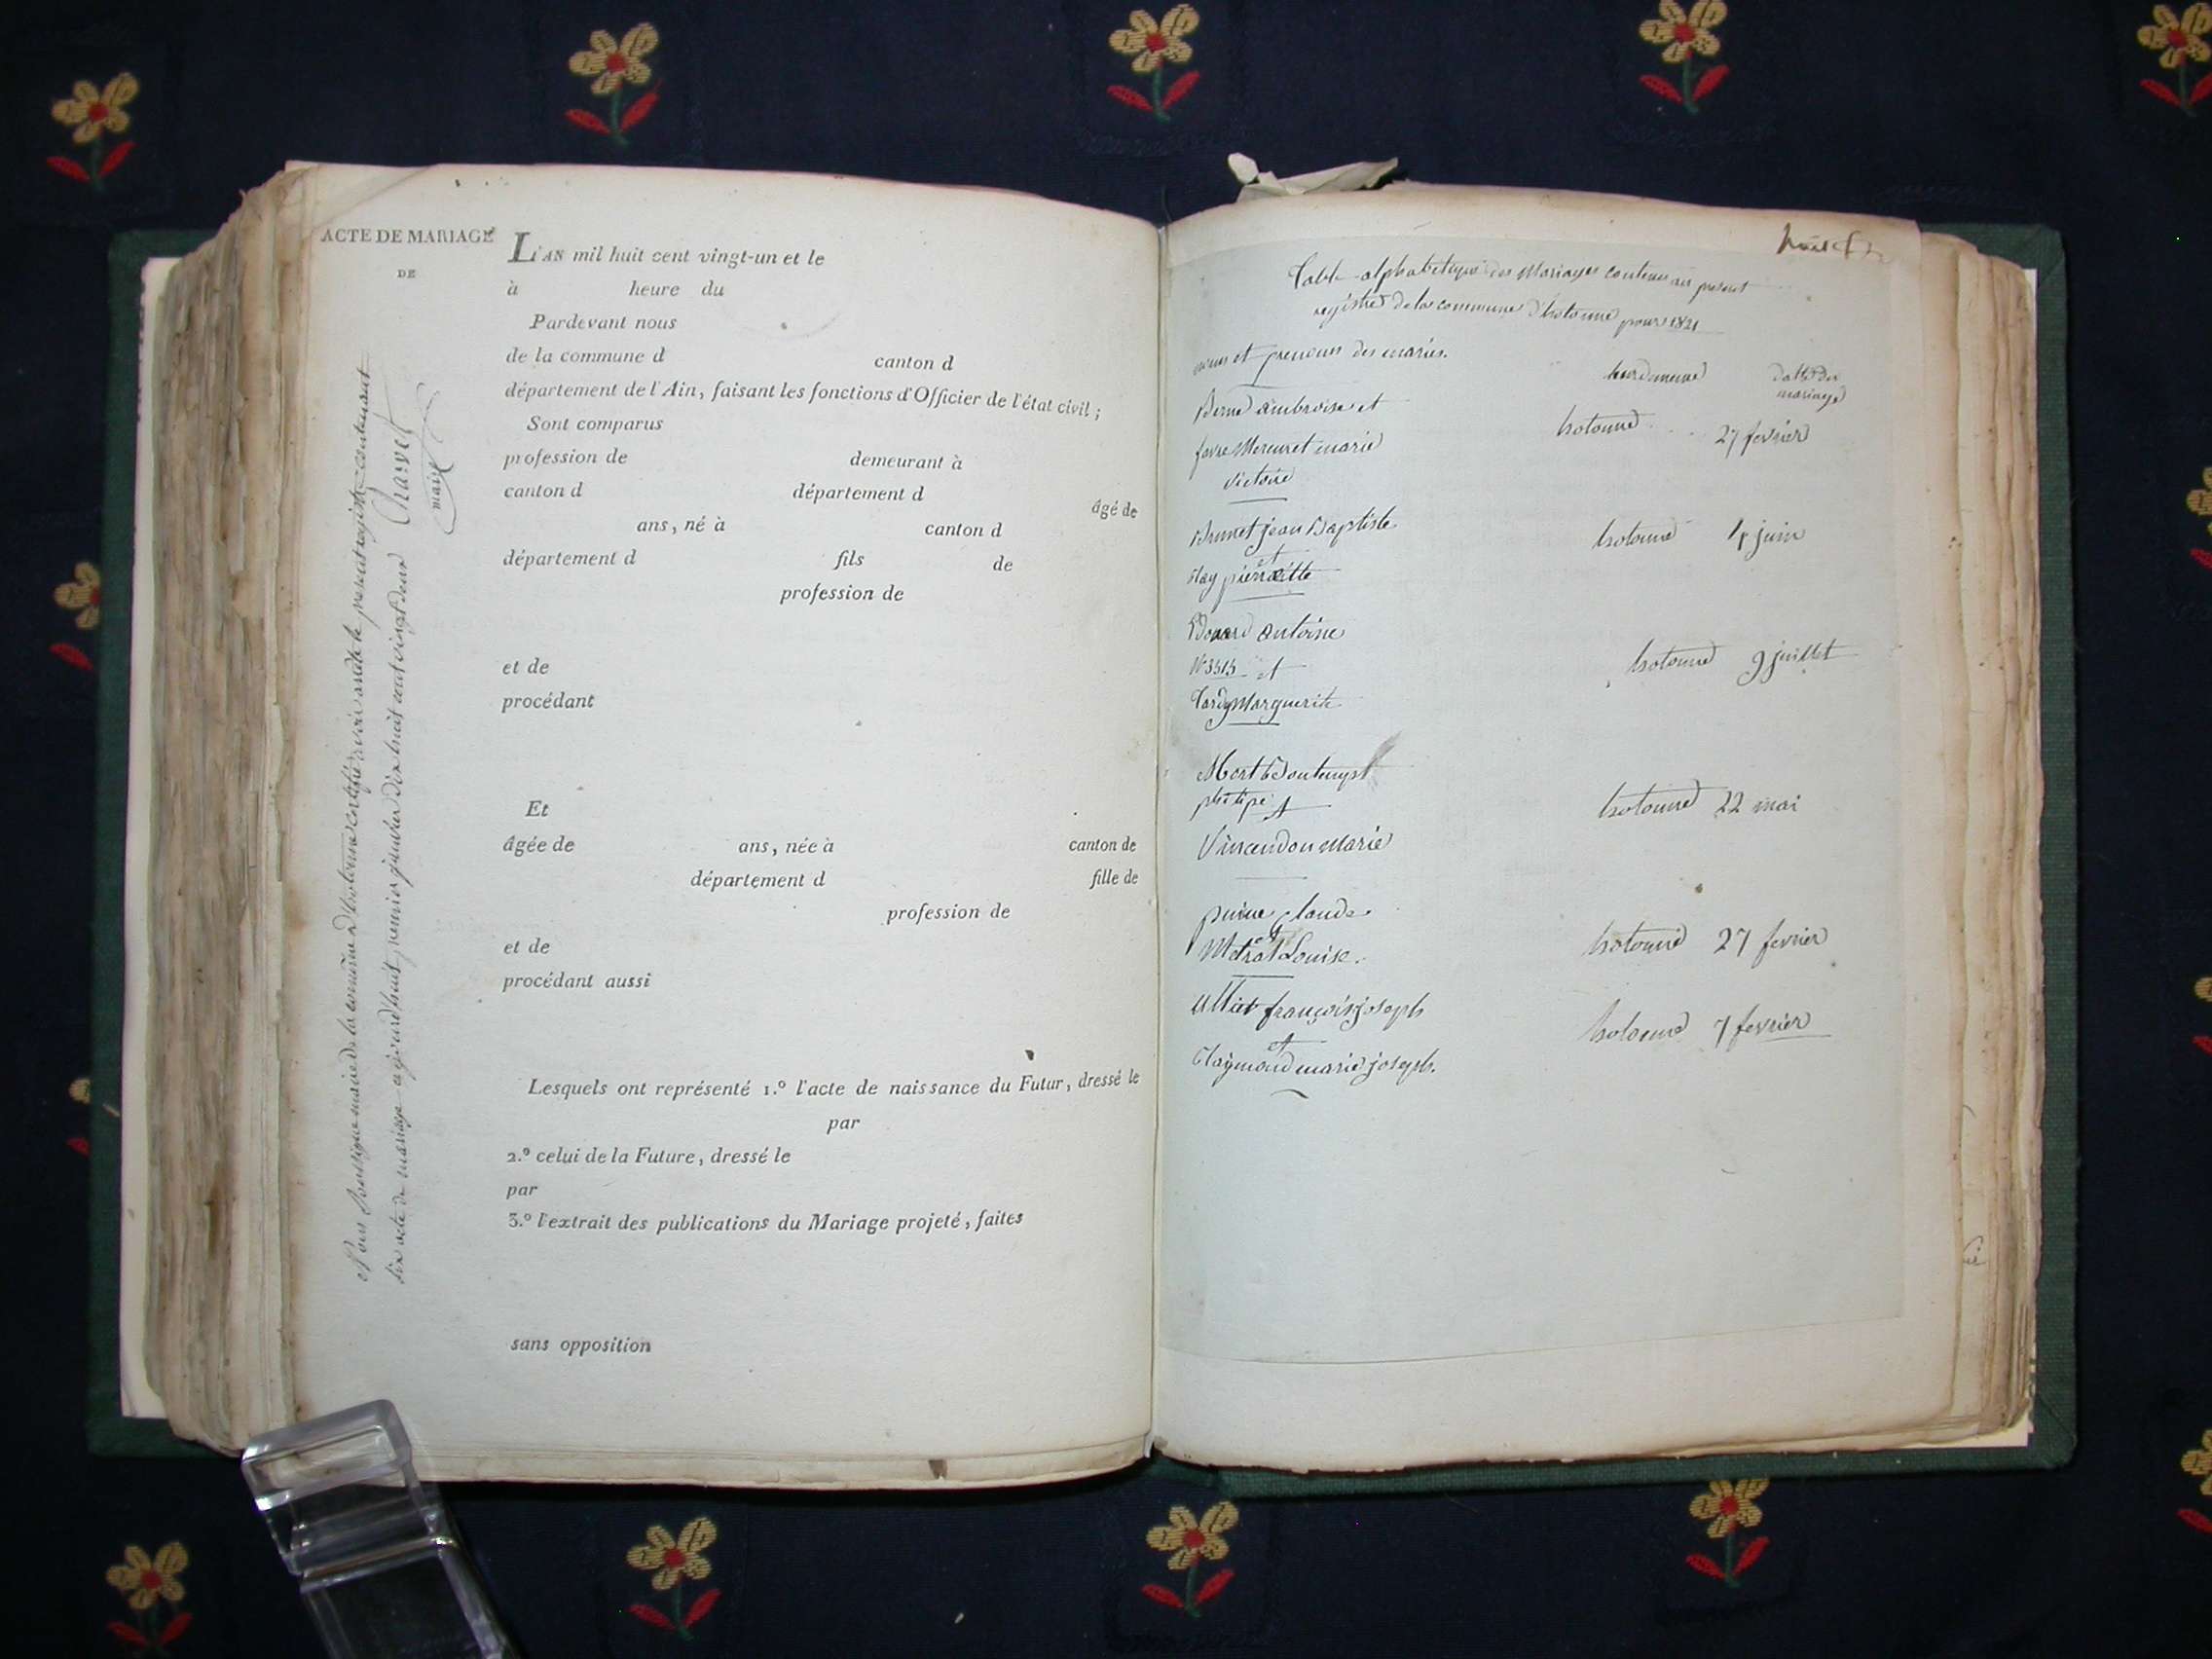 ACTE DE MARIAGE
DE
L'AN mil huit cent vingt-un et le
à heure du
Pardevant nous
de la commune d canton d
département de l'Ain, faisant les fonctions d'Officier de l'état civil ;
Sont comparus
profession de demeurant à
canton d département d âgé de
ans, né à canton d
département d fils de
profession de
et de
procédant
Et
âgée de ans, née à canton de
département d fille de
profession de
et de
procédant aussi
Lesquels ont représenté 1.º l'acte de naissance du Futur, dressé le
par
2.º celui de la Future, dressé le
par
3.º l'extrait des publications du Mariage projeté, faites
sans opposition
Nous soussigné maire de la commune d'hotonne certifie avoir arrêté le present registre contenant
six acte de mariage aujourd'huit premier janvier dix huit cent vingt deux
Charvet
maire
Table alphabetique des Mariages contenu au present
registre de la commune d'hotonne pour 1821
noms et prenoms des mariés. leur demeure datte du
mariage
Berne ambroise et hotonne 27 fevrier
favre Mercuret marie
Victoire
Brunet jean Baptiste hotonne 4 juin
et
Ray pierrette
antoine hotonne 9 juillet
et
Tardy Marguerite
philipe et hotonne 22 mai
Vincendon Marie
Claude
et hotonne 27 fevrier
Metral Louise.
françois joseph hotonne 7 fevrier
et
Raymond marie joseph.